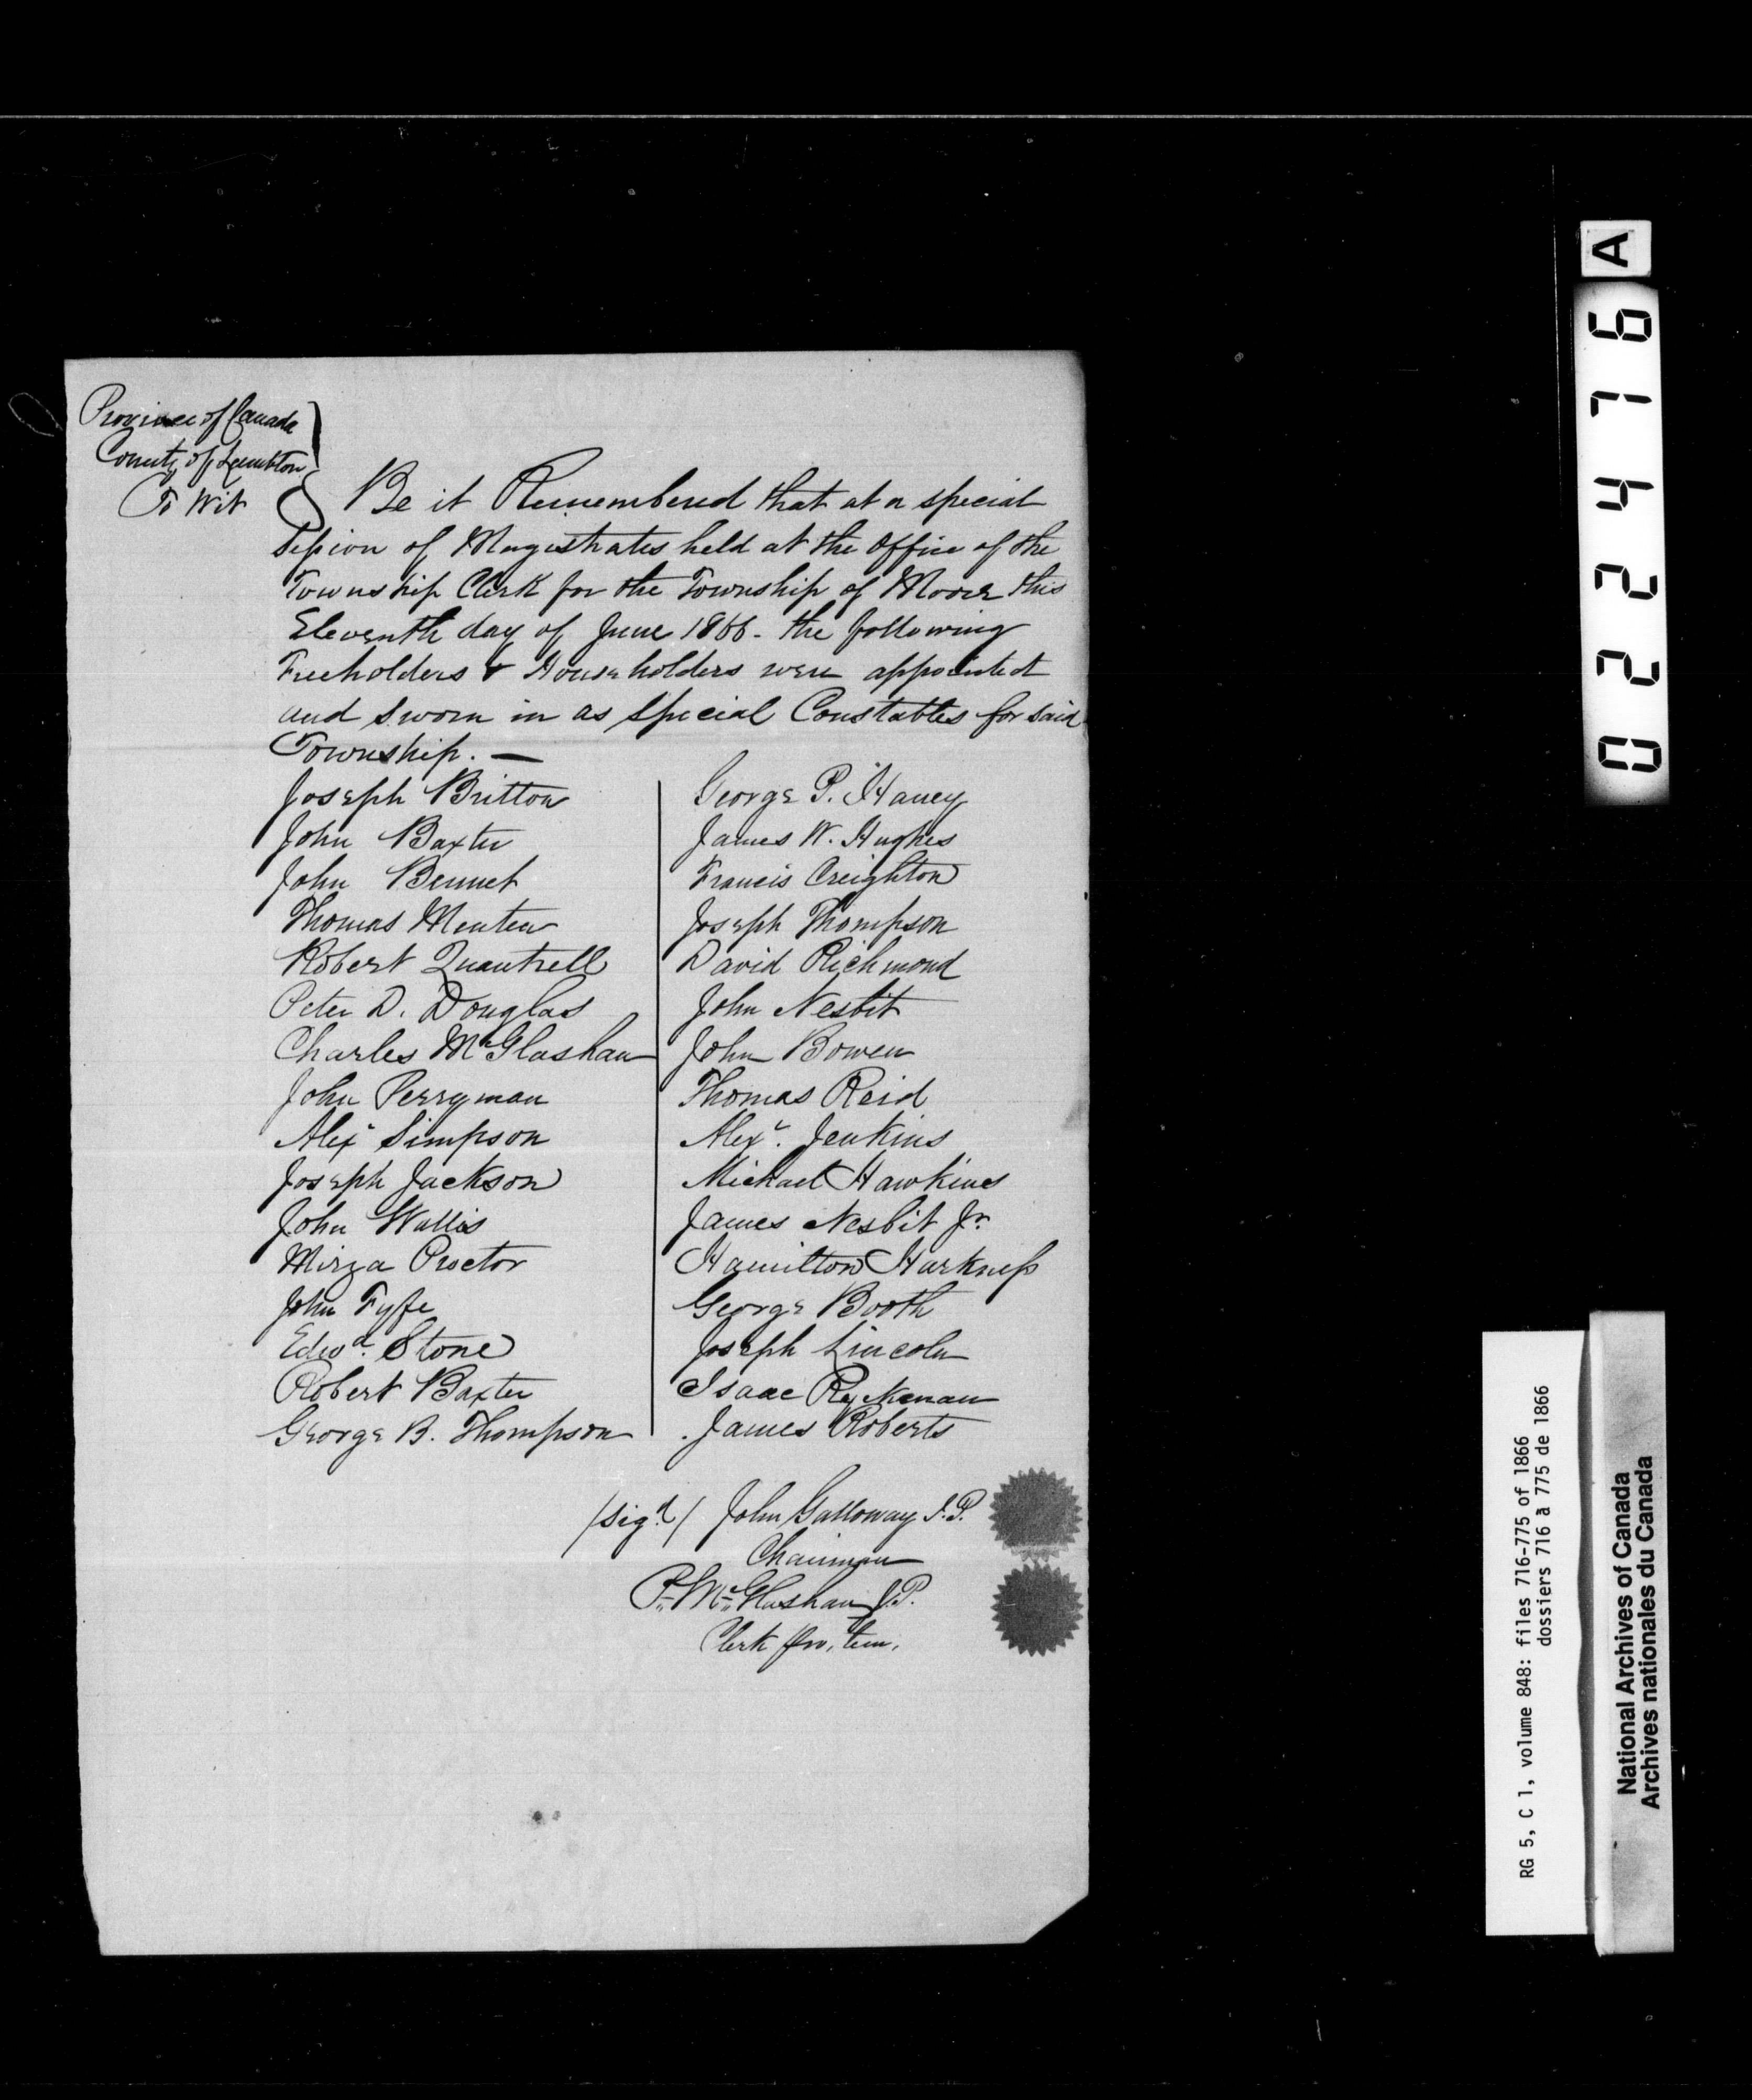 Province of Canada
County of Lambton
To Wit
Be it Remembered that at a special
Session of Magistrates held at the Office of the
Township Clerk for the Township of Moore this
Eleventh day of June 1866 - the following
Freeholders & Householders were appointed
and sworn in as Special Constables for said
Township. —
Joseph Britton
John Baxter
John Bennet
Thomas
Robert Quantrell
Peter D. Douglas
Charles McGlashan
John Perryman
Alexr Simpson
Joseph Jackson
John Wallis
Mirza Proctor
John Fyfe
Edwd. Stone
Robert Baxter
George B. Thompson
George P. Haney
James W. Hughes
Francis Creighton
Joseph Thompson
David Richmond
John Nesbit
John Bowen
Thomas Reid
Alexr. Jenkins
Michael Hawkins
James Nesbit Jr.
Hamilton Harkness
George Booth
Joseph Lincoln
Isaac Ryckman
James Roberts
/sigd/ John Galloway J.P.
Chairman
P. McGlashan J.P.
Clerk pro. tem.
A
022476
RG 5, C 1, volume 848: files 716-775 of 1866
dossiers 716 à 775 de 1866
National Archives of Canada
Archives nationales du Canada